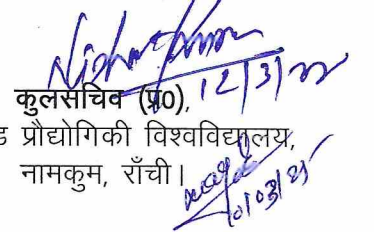 12/3/25
कुलसचिव (प्र0),
ड प्रौद्योगिकी विश्वविद्यालय,
नामकुम, राँची।
10/03/25